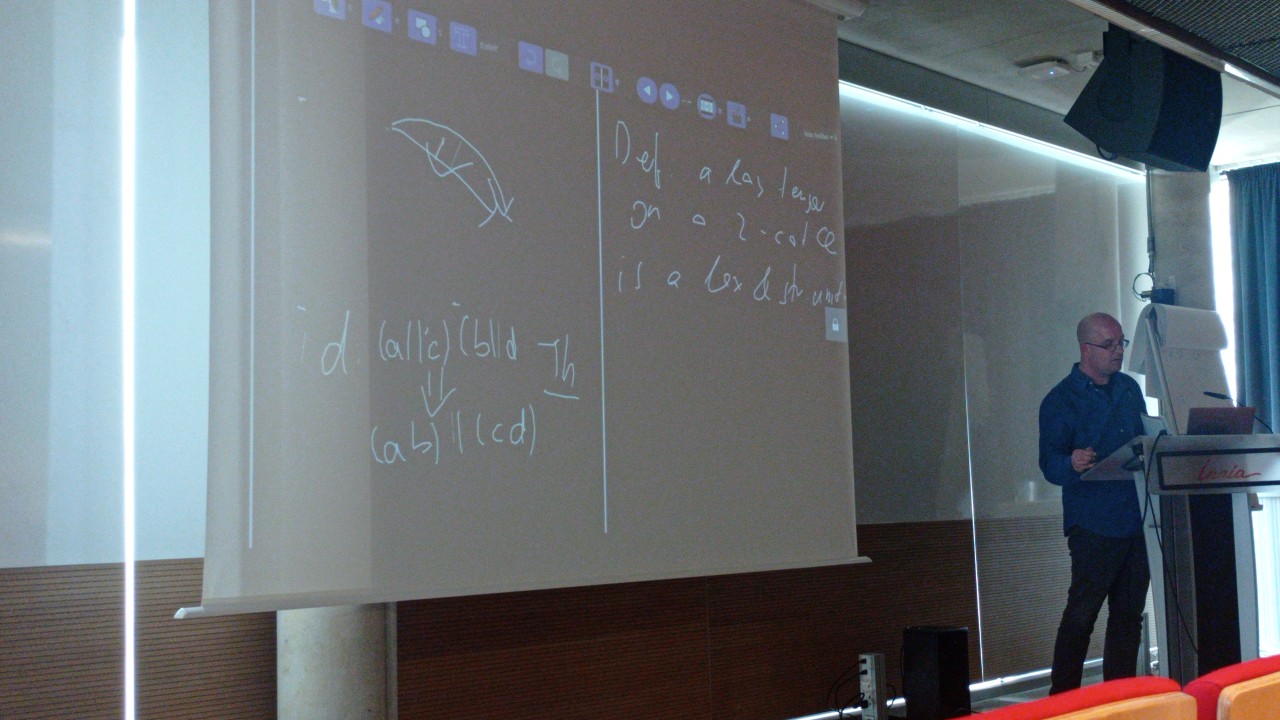 id (a||c) (b||d Th
⇓
(ab) || (cd)
Def a lax tensor
on a 2-cat
is a lax & str
inria